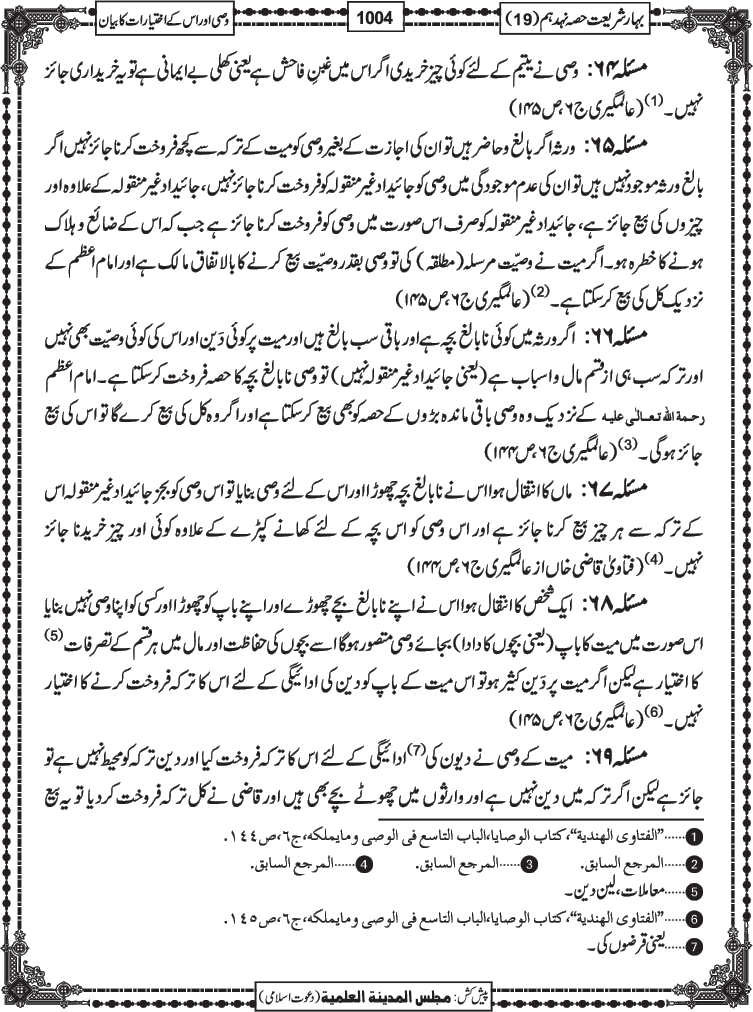 بہارشریعت حصہ نہدہم (19)
1004
وصی اور اس کے اختیارات کا بیان
مسئلہ ۶۴: وصی نے یتیم کے لئے کوئی چیز خریدی اگر اس میں غبنِ فاحش ہے یعنی کھلی بے ایمانی ہے تو یہ خریداری جائز
نہیں۔(1) (عالمگیری ج۶، ص۱۴۵)
مسئلہ ۶۵: ورثہ اگر بالغ و حاضر ہیں تو ان کی اجازت کے بغیر وصی کو میت کے ترکہ سے کچھ فروخت کرنا جائز نہیں اگر
بالغ ورثہ موجود نہیں ہیں تو ان کی عدم موجودگی میں وصی کو جائیداد غیر منقولہ کو فروخت کرنا جائز نہیں، جائیداد غیر منقولہ کے علاوہ اور
چیزوں کی بیع جائز ہے، جائیداد غیر منقولہ کو صرف اس صورت میں وصی کو فروخت کرنا جائز ہے جب کہ اس کے ضائع و ہلاک
ہونے کا خطرہ ہو۔ اگر میت نے وصیت مرسلہ (مطلقہ) کی تو وصی بقدر وصیّت بیع کرنے کا بالاتفاق مالک ہے اور امام اعظم کے
نزدیک کل کی بیع کر سکتا ہے۔(2) (عالمگیری ج۶، ص۱۴۵)
مسئلہ ۶۶: اگر ورثہ میں کوئی نابالغ بچہ ہے اور باقی سب بالغ ہیں اور میت پر کوئی دَین اور اس کی کوئی وصیّت بھی نہیں
اور ترکہ سب ہی از قسم مال و اسباب ہے (یعنی جائیداد غیر منقولہ نہیں) تو وصی نابالغ بچہ کا حصہ فروخت کر سکتا ہے۔ امام اعظم
رحمۃ اللہ تعالٰی علیہ کے نزدیک وہ وصی باقی ماندہ بڑوں کے حصہ کو بھی بیع کر سکتا ہے اور اگر وہ کل کی بیع کرے گا تو اس کی بیع
جائز ہوگی۔(3) (عالمگیری ج۶، ص۱۴۴)
مسئلہ ۶۷: ماں کا انتقال ہوا اس نے نابالغ بچہ چھوڑا اور اس کے لئے وصی بنایا تو اس وصی کو بجز جائیداد غیر منقولہ اس
کے ترکہ سے ہر چیز بیع کرنا جائز ہے اور اس وصی کو اس بچہ کے لئے کھانے کپڑے کے علاوہ کوئی اور چیز خریدنا جائز
نہیں۔(4) (فتاویٰ قاضی خاں از عالمگیری ج۶، ص۱۴۴)
مسئلہ ۶۸: ایک شخص کا انتقال ہوا اس نے اپنے نابالغ بچے چھوڑے اور اپنے باپ کو چھوڑا اور کسی کو اپنا وصی نہیں بنایا
اس صورت میں میت کا باپ (یعنی بچوں کا دادا) بجائے وصی متصور ہوگا اسے بچوں کی حفاظت اور مال میں ہر قسم کے تصرفات(5)
کا اختیار ہے لیکن اگر میت پر دَین کثیر ہو تو اس میت کے باپ کو دین کی ادائیگی کے لئے اس کا ترکہ فروخت کرنے کا اختیار
نہیں۔(6) (عالمگیری ج۶، ص۱۴۵)
مسئلہ ۶۹: میت کے وصی نے دیون کی(7) ادائیگی کے لئے اس کا ترکہ فروخت کیا اور دین ترکہ کو محیط نہیں ہے تو
جائز ہے لیکن اگر ترکہ میں دین نہیں ہے اور وارثوں میں چھوٹے بچے بھی ہیں اور قاضی نے کل ترکہ فروخت کر دیا تو یہ بیع
1......"الفتاوی الھندیة"،کتاب الوصایا،الباب التاسع فی الوصی ومایملکه،ج٦،ص١٤٤.
2......المرجع السابق. 3......المرجع السابق. 4......المرجع السابق.
5......معاملات، لین دین۔
6......"الفتاوی الھندیة"،کتاب الوصایا،الباب التاسع فی الوصی ومایملکه،ج٦،ص١٤٥.
7......یعنی قرضوں کی۔
پیش کش: مجلس المدینة العلمیة (دعوت اسلامی)